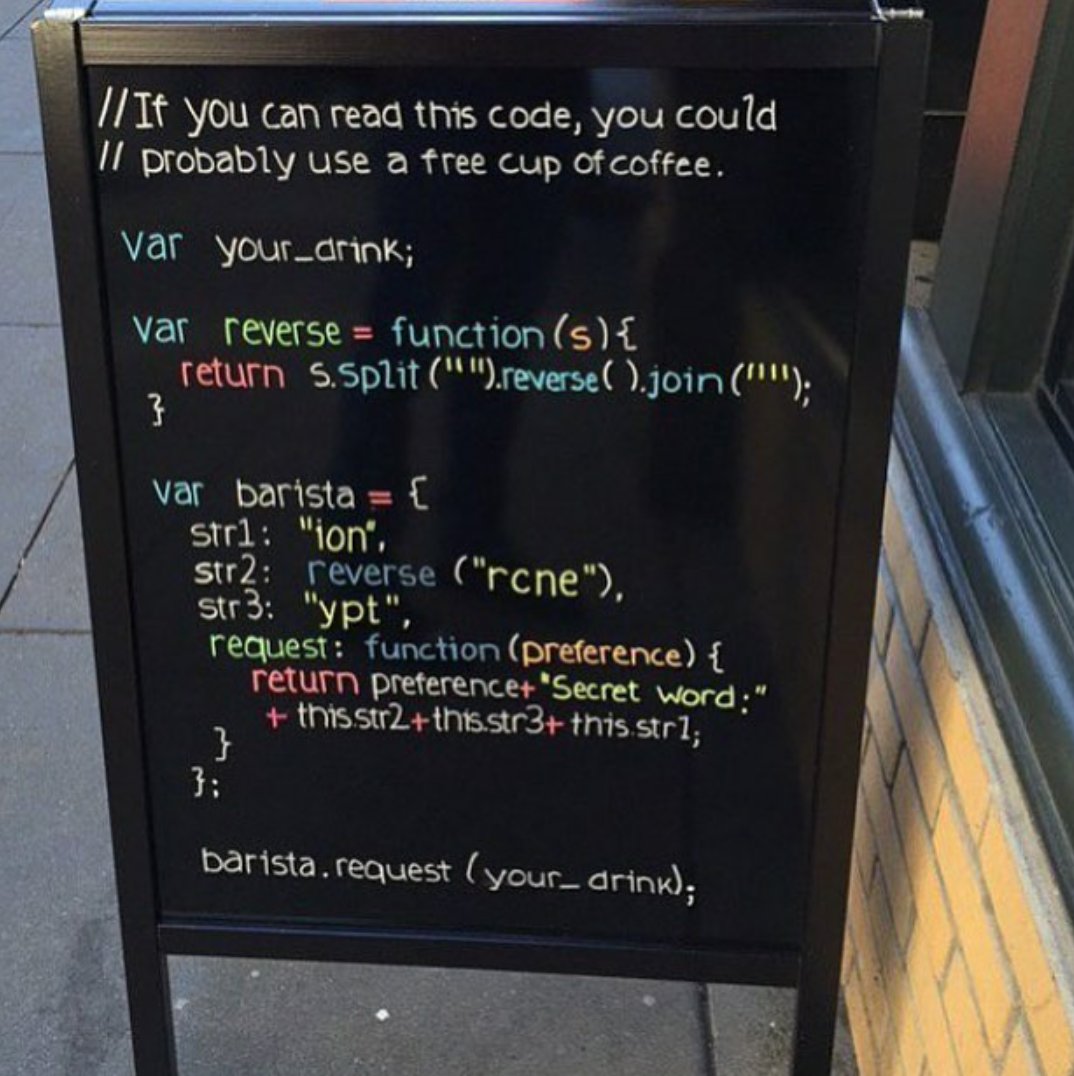 //If you can read this code, you could
// probably use a free cup of coffee.
var your_drink;
var reverse = function (s) {
return s.split ("").reverse( ).join ("");
}
var barista = {
str1: "ion",
str2: reverse ("rcne"),
str3: "ypt",
request: function (preference) {
return preference+"Secret word:"
+ this.str2+this.str3+ this.str1;
}
};
barista.request (your_drink);